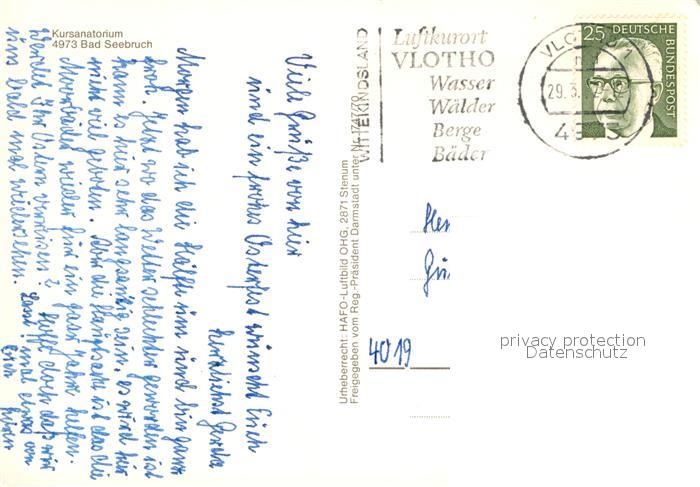 Kursanatorium
4973 Bad Seebruch
Viele Grüße von hier
und ein frohes Osterfest wünscht Euch
herzlichst Gerda
Morgen hab ich die Hälfte um und bin ganz
froh. Jetzt wo das Wetter schlechter geworden ist
kann es hier sehr langweilig sein, es wird hier
nicht viel geboten. Aber die Hauptsache ist das die
wieder für ein paar Jahre helfen.
Ostern verreisen? Hoffe doch daß wir
uns bald mal wiedersehen. Lasst mal etwas von
Euch hören
Urheberrecht: HAFO-Luftbild OHG, 2871 Stenum
Freigegeben vom Reg.-Präsident Darmstadt unter Nr. 1741/70
WITTEKINDSLAND
Luftkurort
VLOTHO
Wasser
Wälder
Berge
Bäder
VLOTHO
29.3.
4973
25 DEUTSCHE
BUNDESPOST
4019
privacy protection
Datenschutz